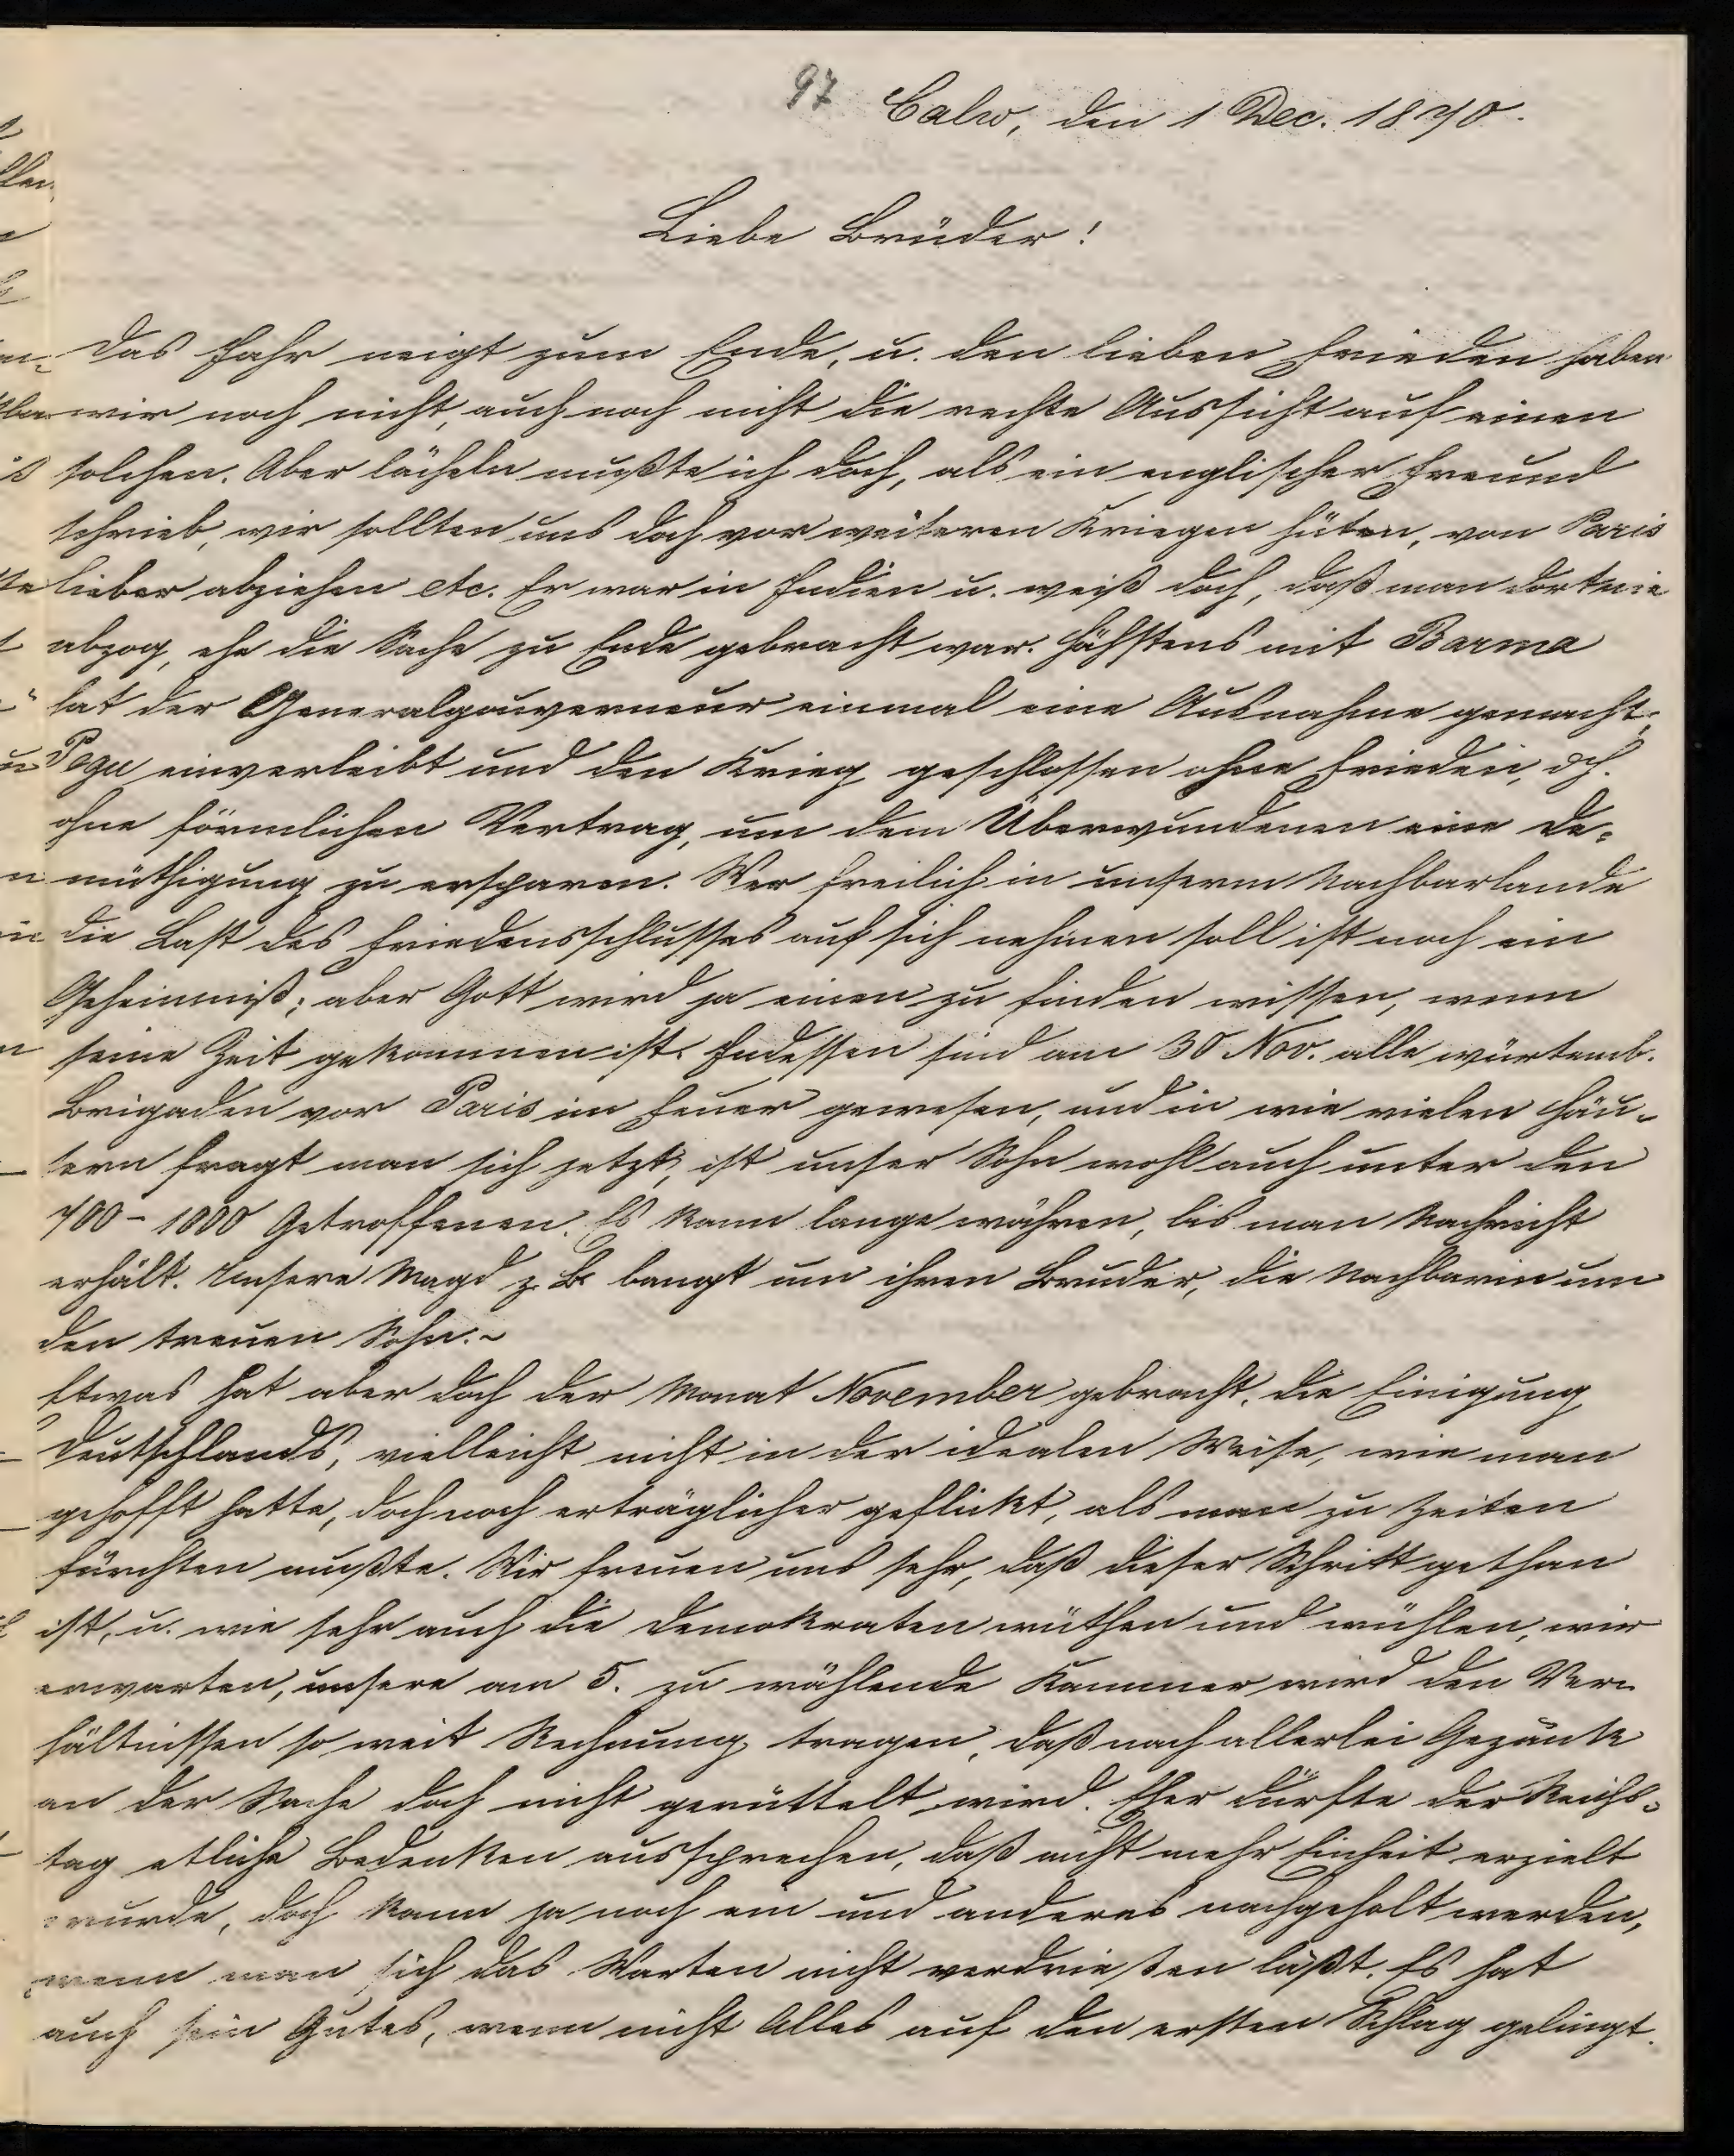 97 Calw, den 1 Dec. 1870.
Liebe Brüder!
Das Jahr neigt zum Ende, u. den lieben Frieden haben
wir noch nicht, auch noch nicht die rechte Aussicht auf einen
solchen. Aber lächeln mußte ich doch, als ein englischer Freund
schrieb, wir sollten uns doch vor weiteren Kriegen hüten, von Paris
lieber abziehen etc. Er war in Indien u. weiß doch, daß man dort nie
abzog, ehe die Sache zu Ende gebracht war. Höchstens mit Barma
hat der Generalgouverneur einmal eine Ausnahme gemacht,
Pegu einverleibt und den Krieg geschlossen ohne Frieden, dh.
ohne förmlichen Vertrag, um dem Überwundenen eine De-
müthigung zu ersparen. Wer freilich in unserm Nachbarlande
die Last des Friedensschlusses auf sich nehmen soll ist noch ein
Geheimniß; aber Gott wird ja einen zu finden wissen, wenn
seine Zeit gekommen ist. Indessen sind am 30 Nov. alle würtemb.
Brigaden vor Paris im Feuer gewesen, und in wie vielen Häu-
sern fragt man sich jetzt, ist unser Sohn wohl auch unter den
700 - 1000 Getroffenen. Es kann lange währen, bis man Nachricht
erhält. Unsere Magd z. B. bangt um ihren Bruder, die Nachbarin um
den treuen Sohn. ~
Etwas hat aber doch der Monat November gebracht, die Einigung
Deutschlands, vielleicht nicht in der idealen Weise, wie man
gehofft hatte, doch noch erträglicher geflickt, als man zu Zeiten
fürchten mußte. Wir freuen uns sehr, daß dieser Schritt gethan
ist, u. wie sehr auch die Demokraten wüthen und wühlen, wir
erwarten, unsere am 5. zu wählende Kammer wird den Ver-
hältnissen so weit Rechnung tragen, daß nach allerlei Gezänk
an der Sache doch nicht gerüttelt wird. Eher dürfte der Reichs-
tag etliche Bedenken aussprechen, daß nicht mehr Einheit erzielt
wurde, doch kann ja noch ein und anderes nachgeholt werden,
wenn man sich das Warten nicht verdrießen läßt. Es hat
auch sein Gutes, wenn nicht Alles auf den ersten Schlag gelingt.